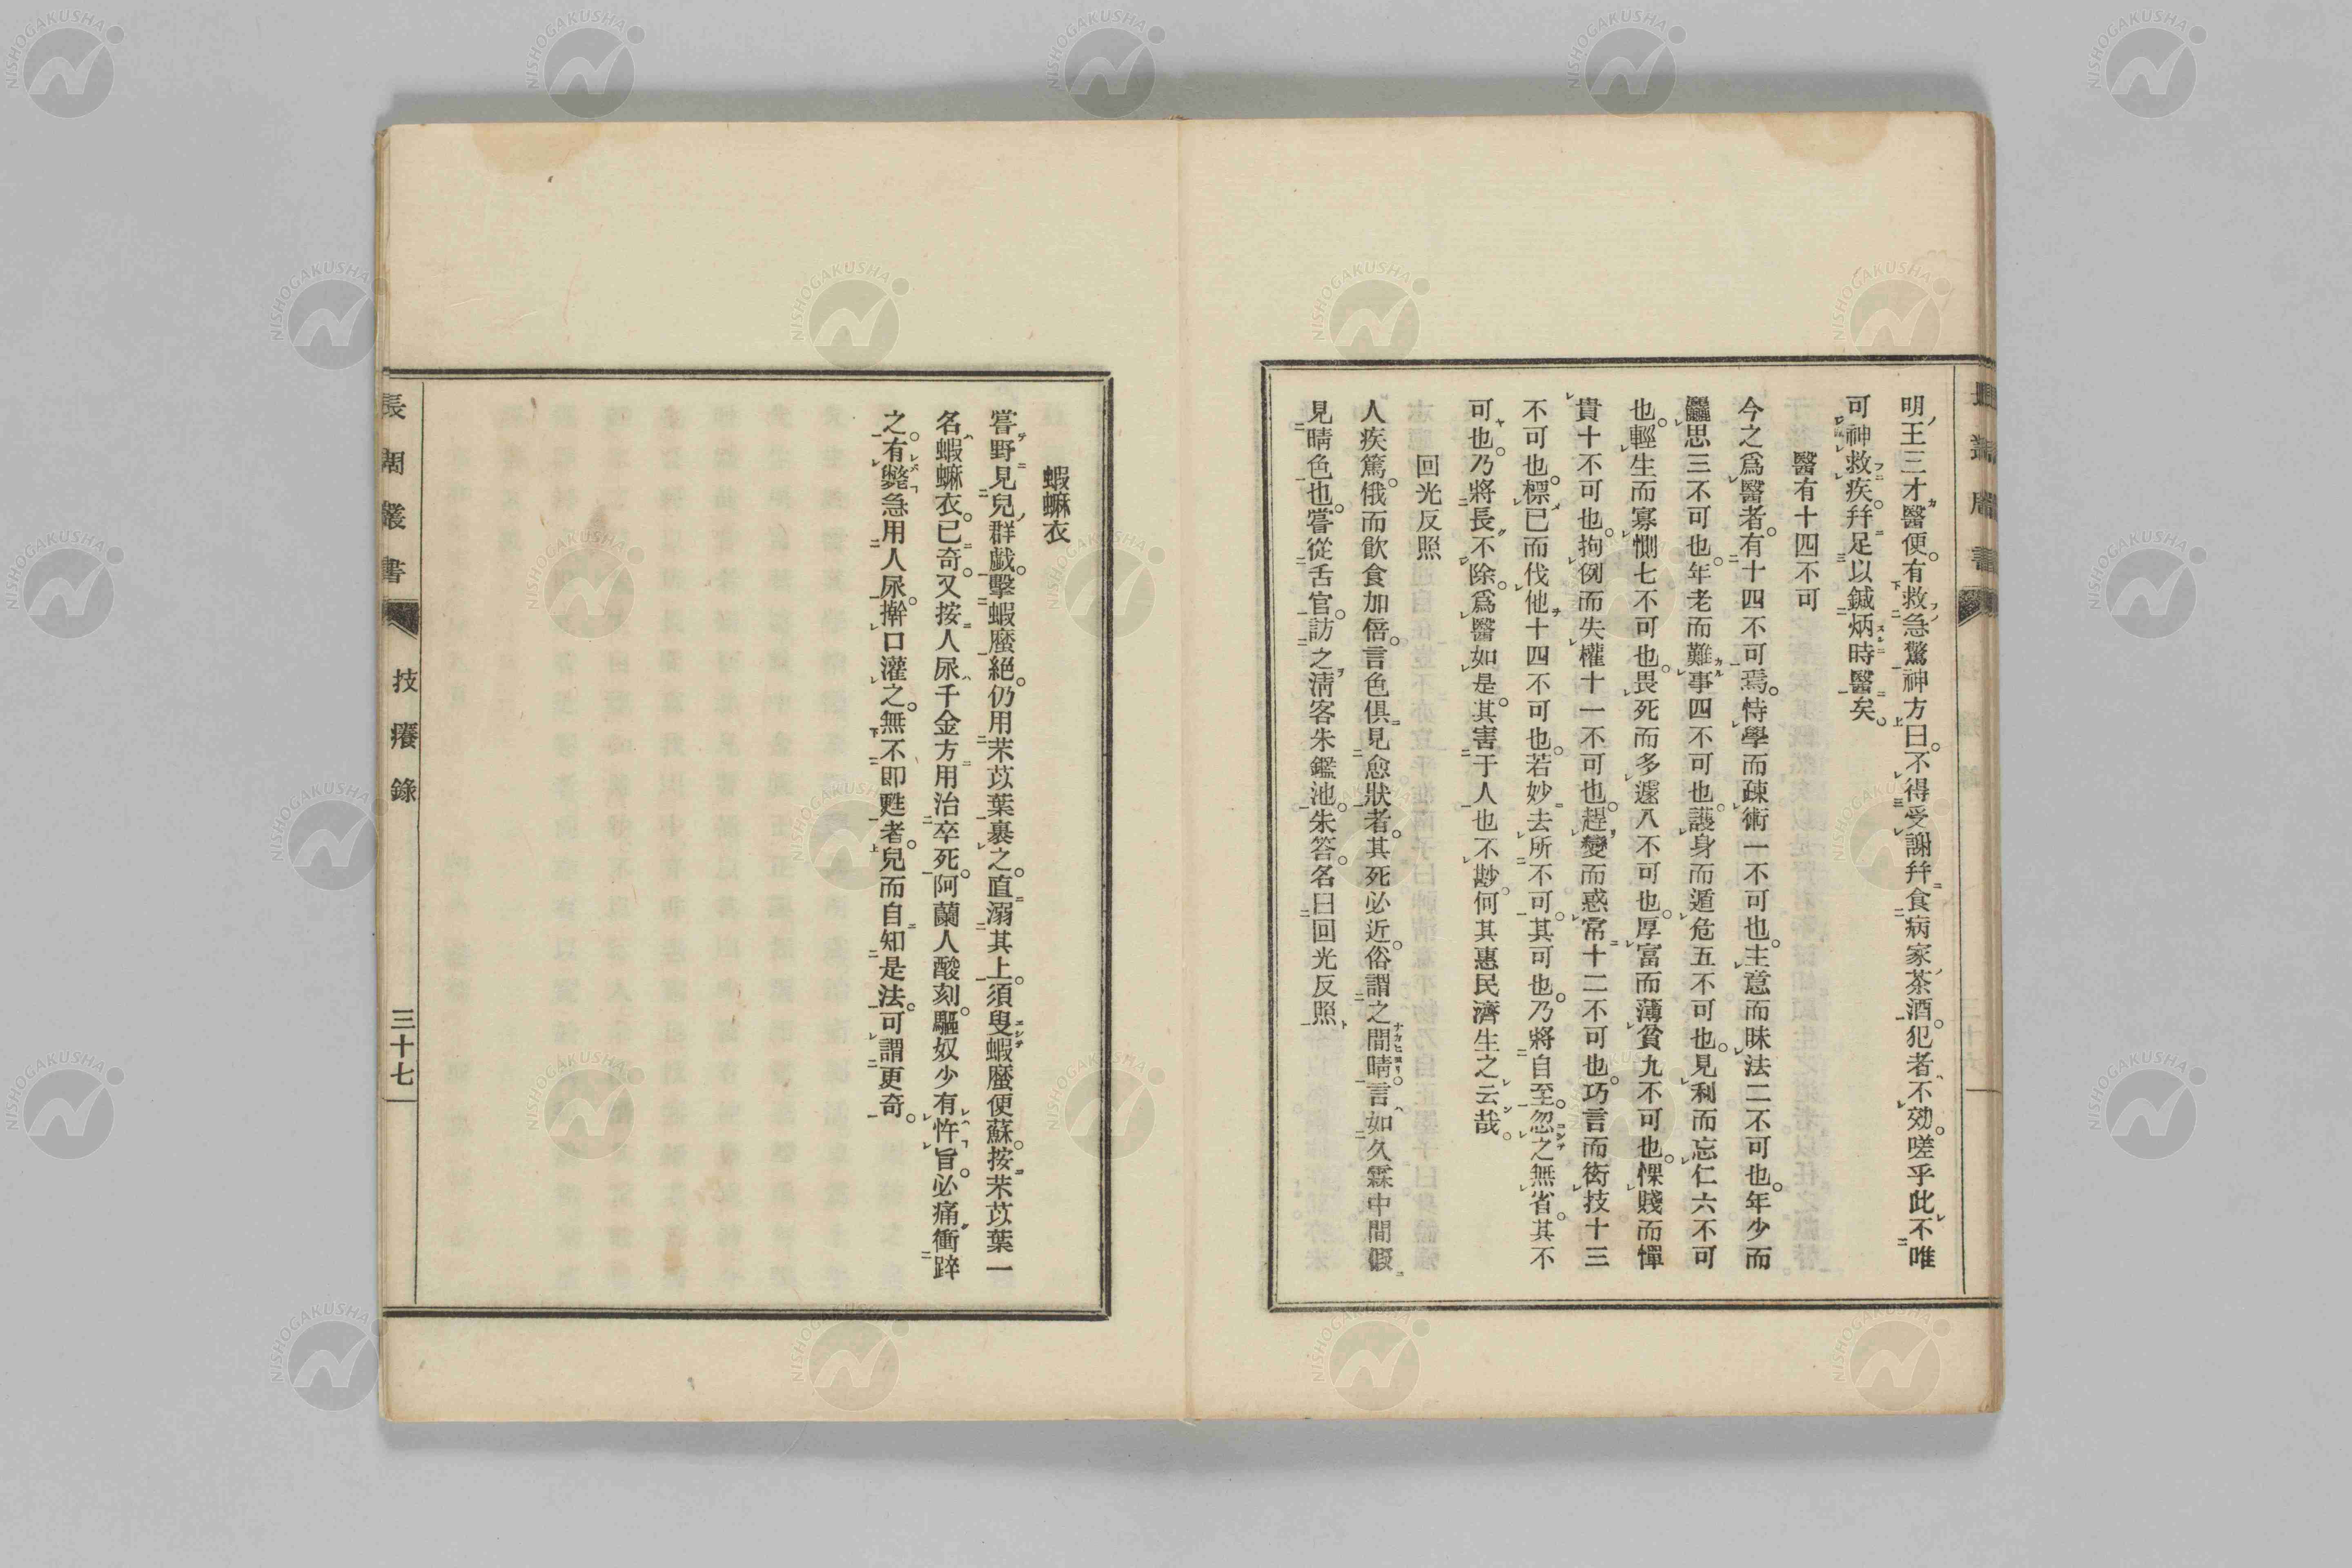 明王三才醫便。有救急驚神方曰。不得受謝幷食病家茶酒。犯者不効。嗟乎此不唯
可神救疾。幷足以鍼炳時醫矣。
醫有十四不可
今之爲醫者。有十四不可焉。恃學而疎術一不可也。主意而昧法二不可也。年少而
麤思三不可也。年老而難事四不可也。護身而遁危五不可也。見利而忘仁六不可
也。輕生而寡惻七不可也。畏死而多遽八不可也。厚富而薄貧九不可也。惈賤而憚
貴十不可也。拘例而失權十一不可也。趕變而惑常十二不可也。巧言而衒技十三
不可也。標已而伐他十四不可也。若妙去所不可。其可也。乃將自至。忽之無省。其不
可也。乃將長不除。爲醫如是。其害于人也不尠。何其惠民濟生之云哉。
回光反照
人疾篤。俄而飮食加倍。言色俱見愈狀者。其死必近。俗謂之間晴。言如久霖中間假
見晴色也。嘗從舌官。訪之淸客朱鑑池。朱答。名曰回光反照。
蝦蟆衣
嘗野見兒群戯。擊蝦䗫絕。仍用芣苡葉裹之。直溺其上。須臾蝦䗫便蘇。按芣苡葉一
名蝦蟆衣。已奇。又按人尿千金方用治卒死。阿蘭人酸刻。驅奴少有忤旨。必痛衝踤
之。有斃急用人尿。擀口灌之。無不即甦者。兒而自知是法。可謂更奇。
長周叢書
技癢錄
三十七
NISHOGAKUSHA